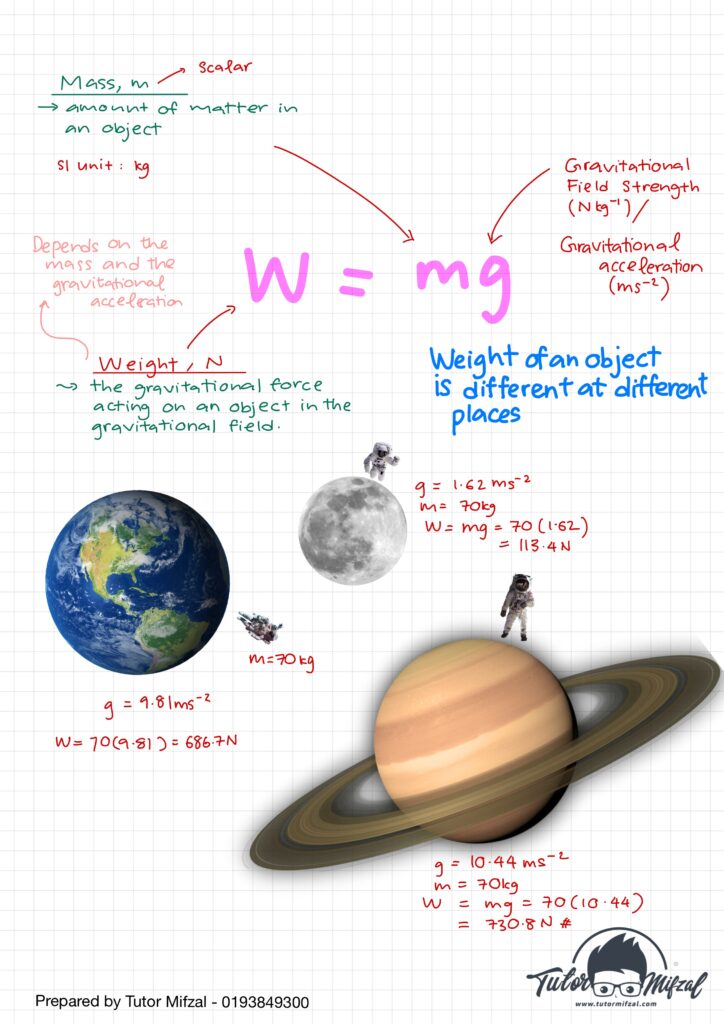 Mass, m
scalar
→ amount of matter in
an object
SI unit : kg
Gravitational
Field Strength
(Nkg⁻¹) /
Gravitational
acceleration
(ms⁻²)
Depends on the
mass and the
gravitational
acceleration
W = mg
Weight, N
↝ the gravitational force
acting on an object in the
gravitational field.
Weight of an object
is different at different
places
g = 1.62 ms⁻²
m = 70kg
W = mg = 70(1.62)
= 113.4N
m=70kg
g = 9.81ms⁻²
W = 70(9.81) = 686.7N
g = 10.44 ms⁻²
m = 70kg
W = mg = 70(10.44)
= 730.8N #
Tutor Mifzal
®
www.tutormifzal.com
Prepared by Tutor Mifzal - 0193849300